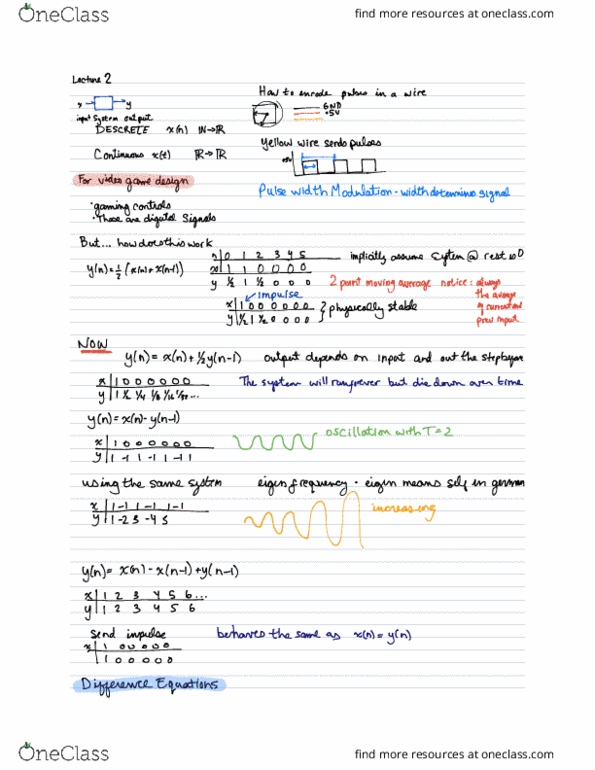 OneClass
find more resources at oneclass.com
Lecture 2
x y
input System output
DESCRETE x(n) IN→IR
Continuous x(t) IR→IR
How to encode pulses in a wire
GND
+5V
Yellow wire sends pulses
+5V
Pulse width Modulation - width determines signal
For video game design
• gaming controls
• These are digital Signals
But... how does this work
y(n) = ½ (x(n) + x(n-1))
n | 0 1 2 3 4 5
x | 1 1 0 0 0 0
y ½ 1 ½ 0 0 0
implicitly assume system @ rest
2 point moving average notice: always the average of current and prev input
impulse
x | 1 0 0 0 0 0 0
y | ½ ½ 0 0 0 0
} physically stable
NOW
y(n) = x(n) + ½ y(n-1) output depends on input and out the step before
x | 1 0 0 0 0 0 0
y | 1 ½ ¼ ⅛ 1/16 1/32 ...
The system will run forever but die down over time
y(n) = x(n) - y(n-1)
x | 1 0 0 0 0 0 0
y | 1 -1 1 -1 1 -1 1
oscillation with T = 2
using the same system eigen frequency - eigen means self in german
x | 1 -1 1 -1 1 -1
y | 1 -2 3 -4 5
increasing
y(n) = x(n) - x(n-1) + y(n-1)
x | 1 2 3 4 5 6...
y | 1 2 3 4 5 6
send impulse behaves the same as x(n) = y(n)
x | 1 0 0 0 0 0
| 1 0 0 0 0 0
Difference Equations
OneClass
find more resources at oneclass.com